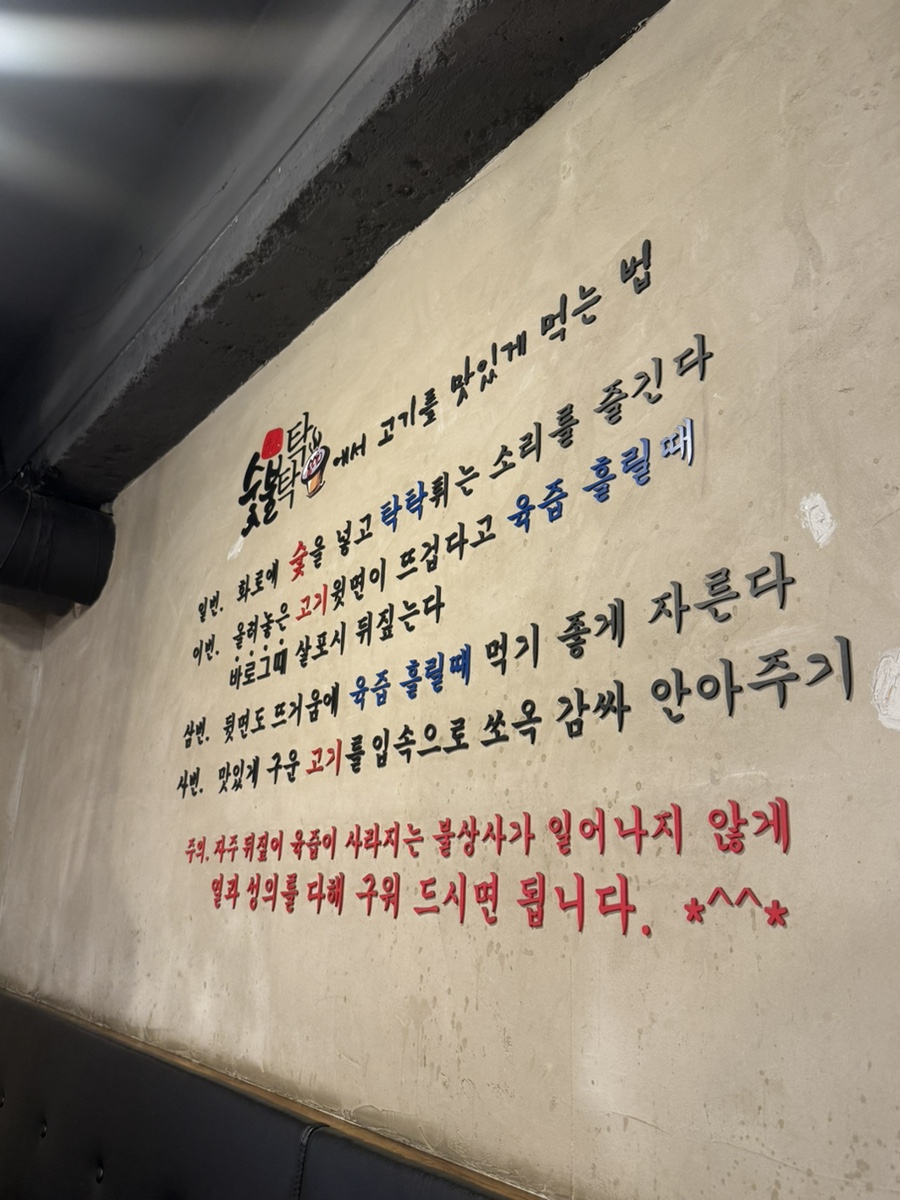 숯불탁탁에서 고기를 맛있게 먹는 법
일번. 화로에 숯을 넣고 탁탁튀는 소리를 즐긴다
이번. 올려놓은 고기윗면이 뜨겁다고 육즙 흘릴때
바로그때 살포시 뒤짚는다
삼번. 뒷면도 뜨거움에 육즙 흘릴때 먹기 좋게 자른다
사번. 맛있게 구운 고기를 입속으로 쏘옥 감싸 안아주기
주의. 자주 뒤짚어 육즙이 사라지는 불상사가 일어나지 않게
열과 성의를 다해 구워 드시면 됩니다. *^^*